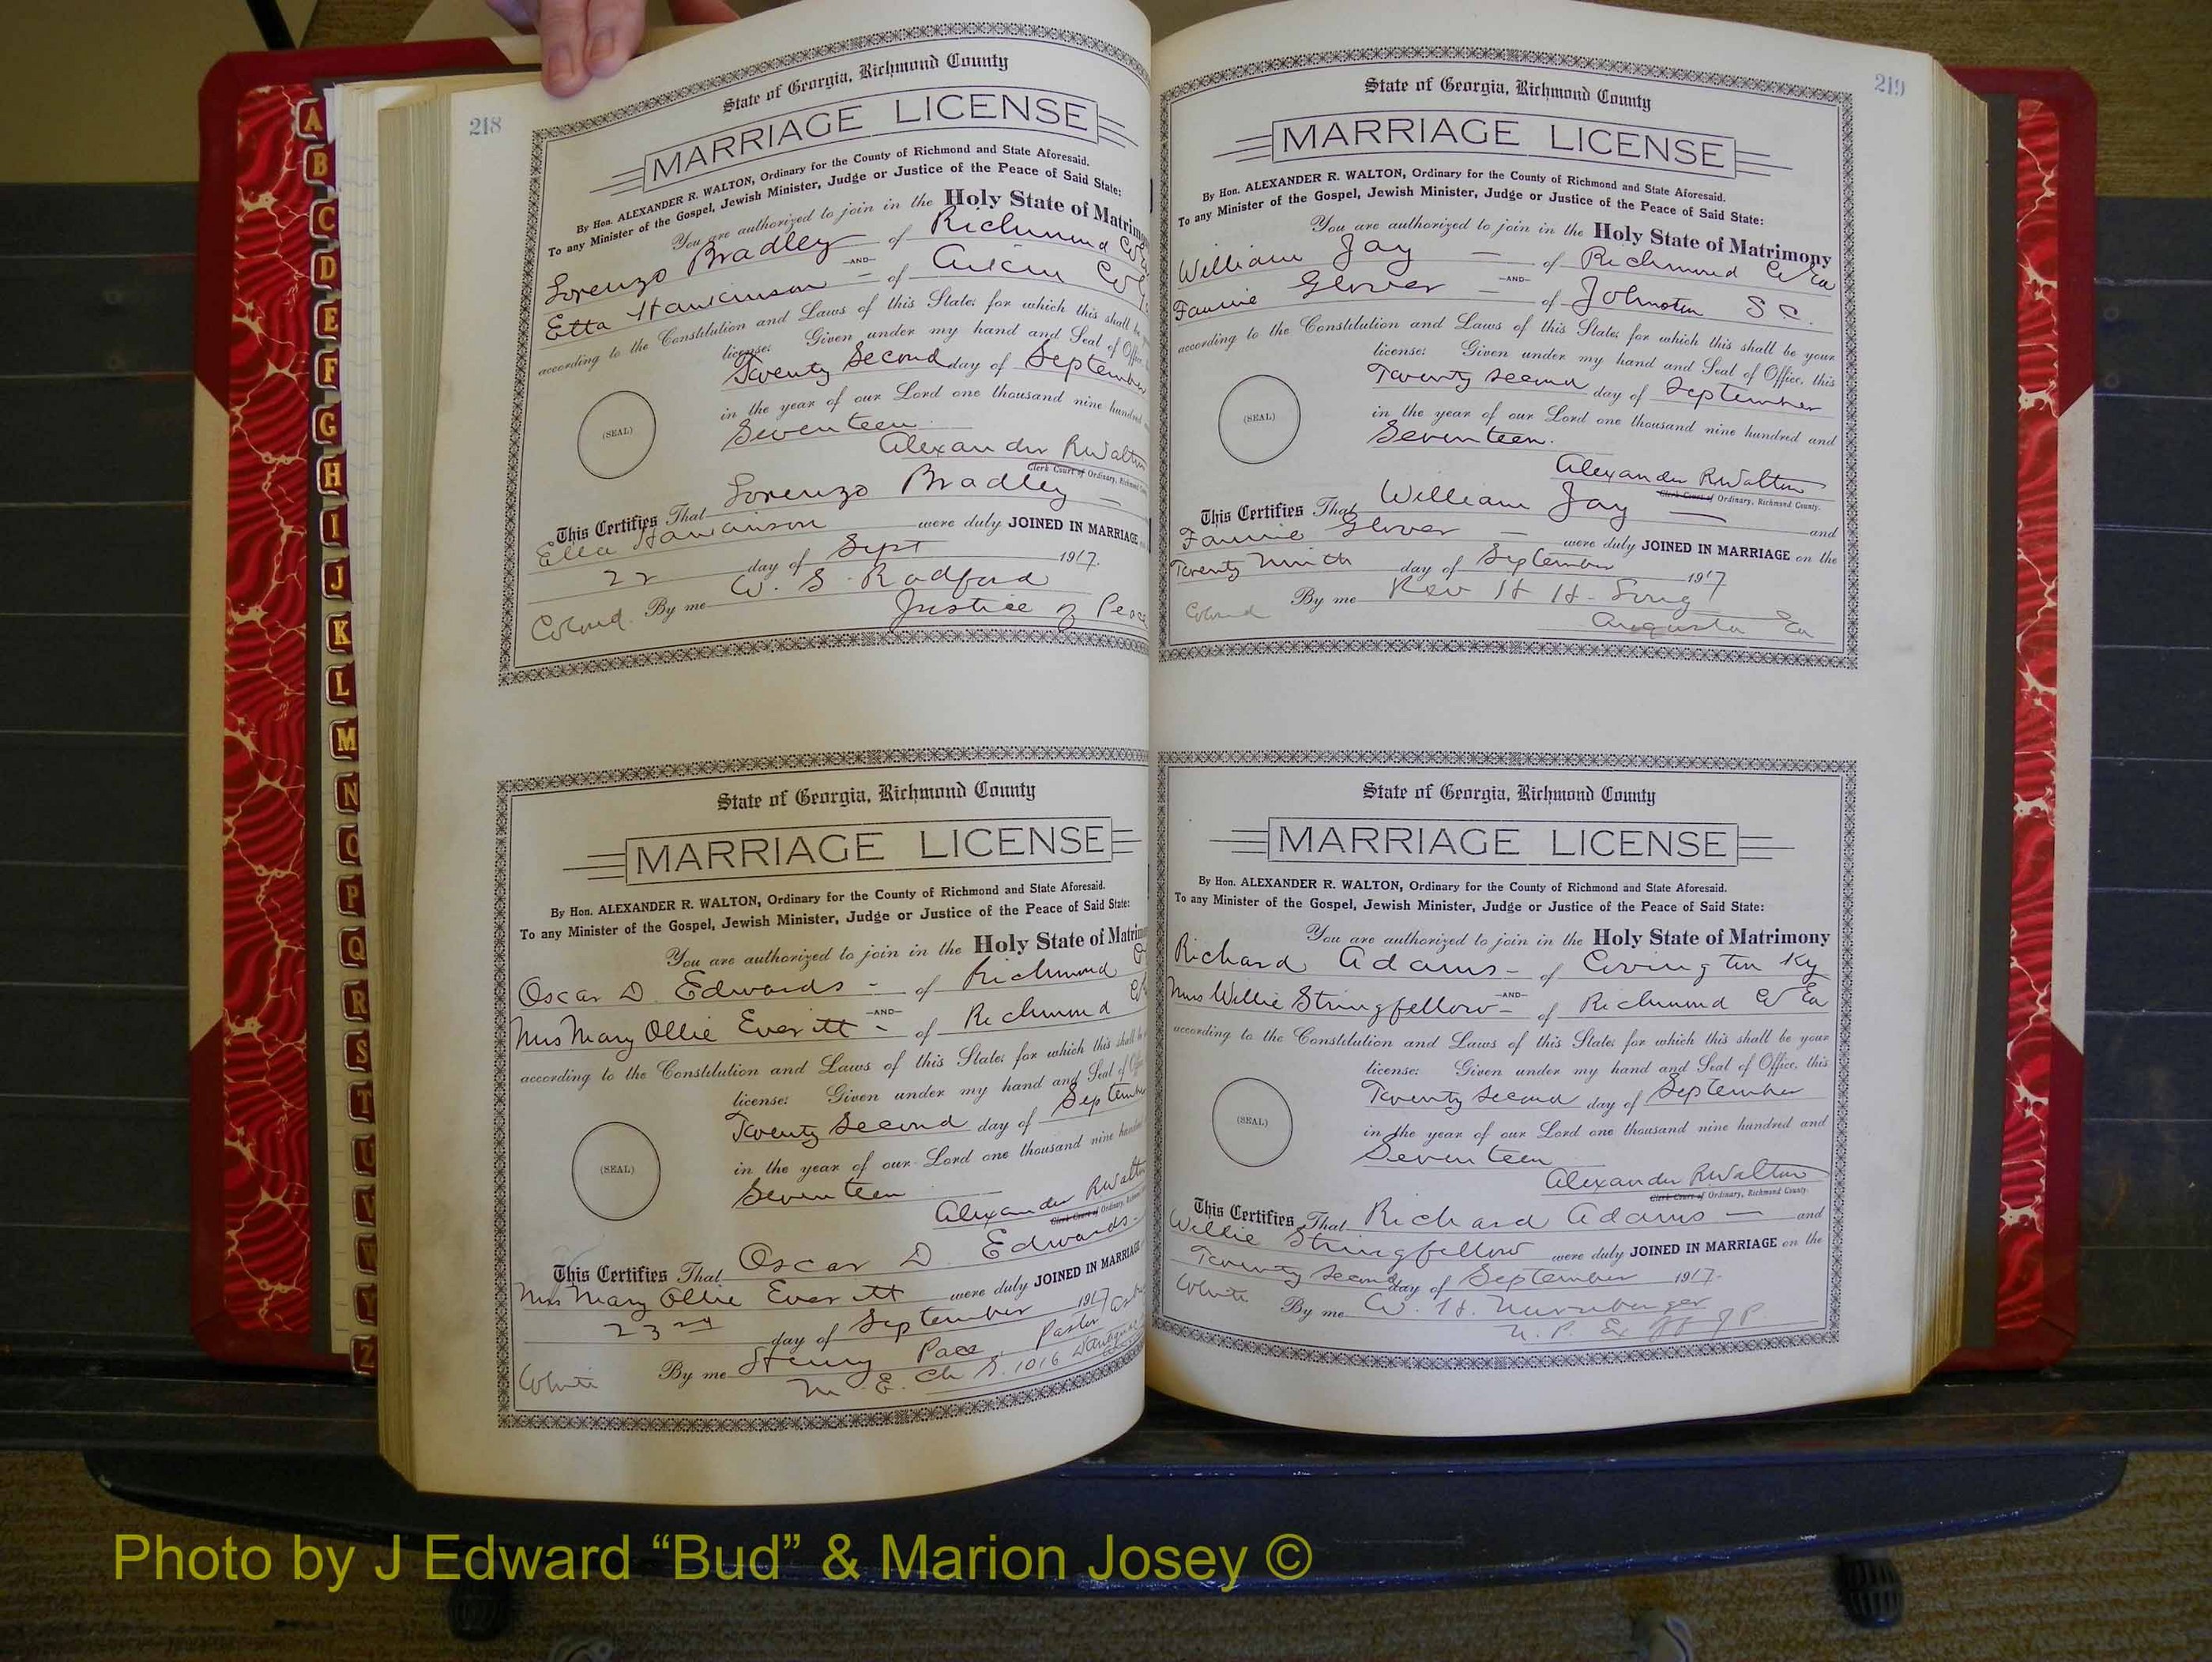 218
State of Georgia, Richmond County
MARRIAGE LICENSE
By Hon. ALEXANDER R. WALTON, Ordinary for the County of Richmond and State Aforesaid.
To any Minister of the Gospel, Jewish Minister, Judge or Justice of the Peace of Said State:
You are authorized to join in the Holy State of Matrimo
Lorenzo Bradley of Richmond Co
—AND—
Etta Hankinson — of Aiken Co
according to the Constitution and Laws of this State; for which this shall be
license: Given under my hand and Seal of Office,
Twenty Second day of September
in the year of our Lord one thousand nine hundred
Seventeen
Alexander R Walton
(SEAL)
Clerk Court of Ordinary, Richmond
This Certifies That Lorenzo Bradley —
Etta Hankinson were duly JOINED IN MARRIAGE
22 day of Sept 1917.
By me W. S. Radford
Colored. Justice of Peace
State of Georgia, Richmond County
MARRIAGE LICENSE
By Hon. ALEXANDER R. WALTON, Ordinary for the County of Richmond and State Aforesaid.
To any Minister of the Gospel, Jewish Minister, Judge or Justice of the Peace of Said State:
You are authorized to join in the Holy State of Matrimo
Oscar D. Edwards - of Richmond
—AND—
Mrs Mary Ollie Everitt - of Richmond
according to the Constitution and Laws of this State; for which this shall be
license: Given under my hand and Seal of
Twenty Second day of September
in the year of our Lord one thousand nine hundred
Seventeen
(SEAL)
Alexander R Walton
Clerk Court of Ordinary,
This Certifies That Oscar D Edwards-
Mrs Mary Ollie Everitt were duly JOINED IN MARRIAGE
23rd day of September 1917
By me Henry Pace Pastor
White M. E. Ch S. 1016
219
State of Georgia, Richmond County
MARRIAGE LICENSE
By Hon. ALEXANDER R. WALTON, Ordinary for the County of Richmond and State Aforesaid.
To any Minister of the Gospel, Jewish Minister, Judge or Justice of the Peace of Said State:
You are authorized to join in the Holy State of Matrimony
William Jay — of Richmond Co Ga
—AND—
Fannie Glover — of Johnston S C.
according to the Constitution and Laws of this State; for which this shall be your
license: Given under my hand and Seal of Office, this
Twenty second day of September
in the year of our Lord one thousand nine hundred and
Seventeen.
(SEAL)
Alexander R Walton
Clerk Court of Ordinary, Richmond County.
This Certifies That William Jay — and
Fannie Glover — were duly JOINED IN MARRIAGE on the
Twenty Ninth day of September 1917
Colored By me Rev H H.
Augusta Ga
State of Georgia, Richmond County
MARRIAGE LICENSE
By Hon. ALEXANDER R. WALTON, Ordinary for the County of Richmond and State Aforesaid.
To any Minister of the Gospel, Jewish Minister, Judge or Justice of the Peace of Said State:
You are authorized to join in the Holy State of Matrimony
Richard Adams - of Covington Ky
—AND—
Mrs Willie Stringfellow - of Richmond Co Ga
according to the Constitution and Laws of this State; for which this shall be your
license: Given under my hand and Seal of Office, this
Twenty Second day of September
in the year of our Lord one thousand nine hundred and
Seventeen
(SEAL)
Alexander R Walton
Clerk Court of Ordinary, Richmond County.
This Certifies That Richard Adams — and
Willie Stringfellow were duly JOINED IN MARRIAGE on the
Twenty Second day of September 1917.
White By me W. H. Nurnberger
N. P. Ex off J P
A
B
C
D
E
F
G
H
I
J
K
L
M
N
O
P
Q
R
S
T
U
V
W
Y
Z
Photo by J Edward “Bud” & Marion Josey ©